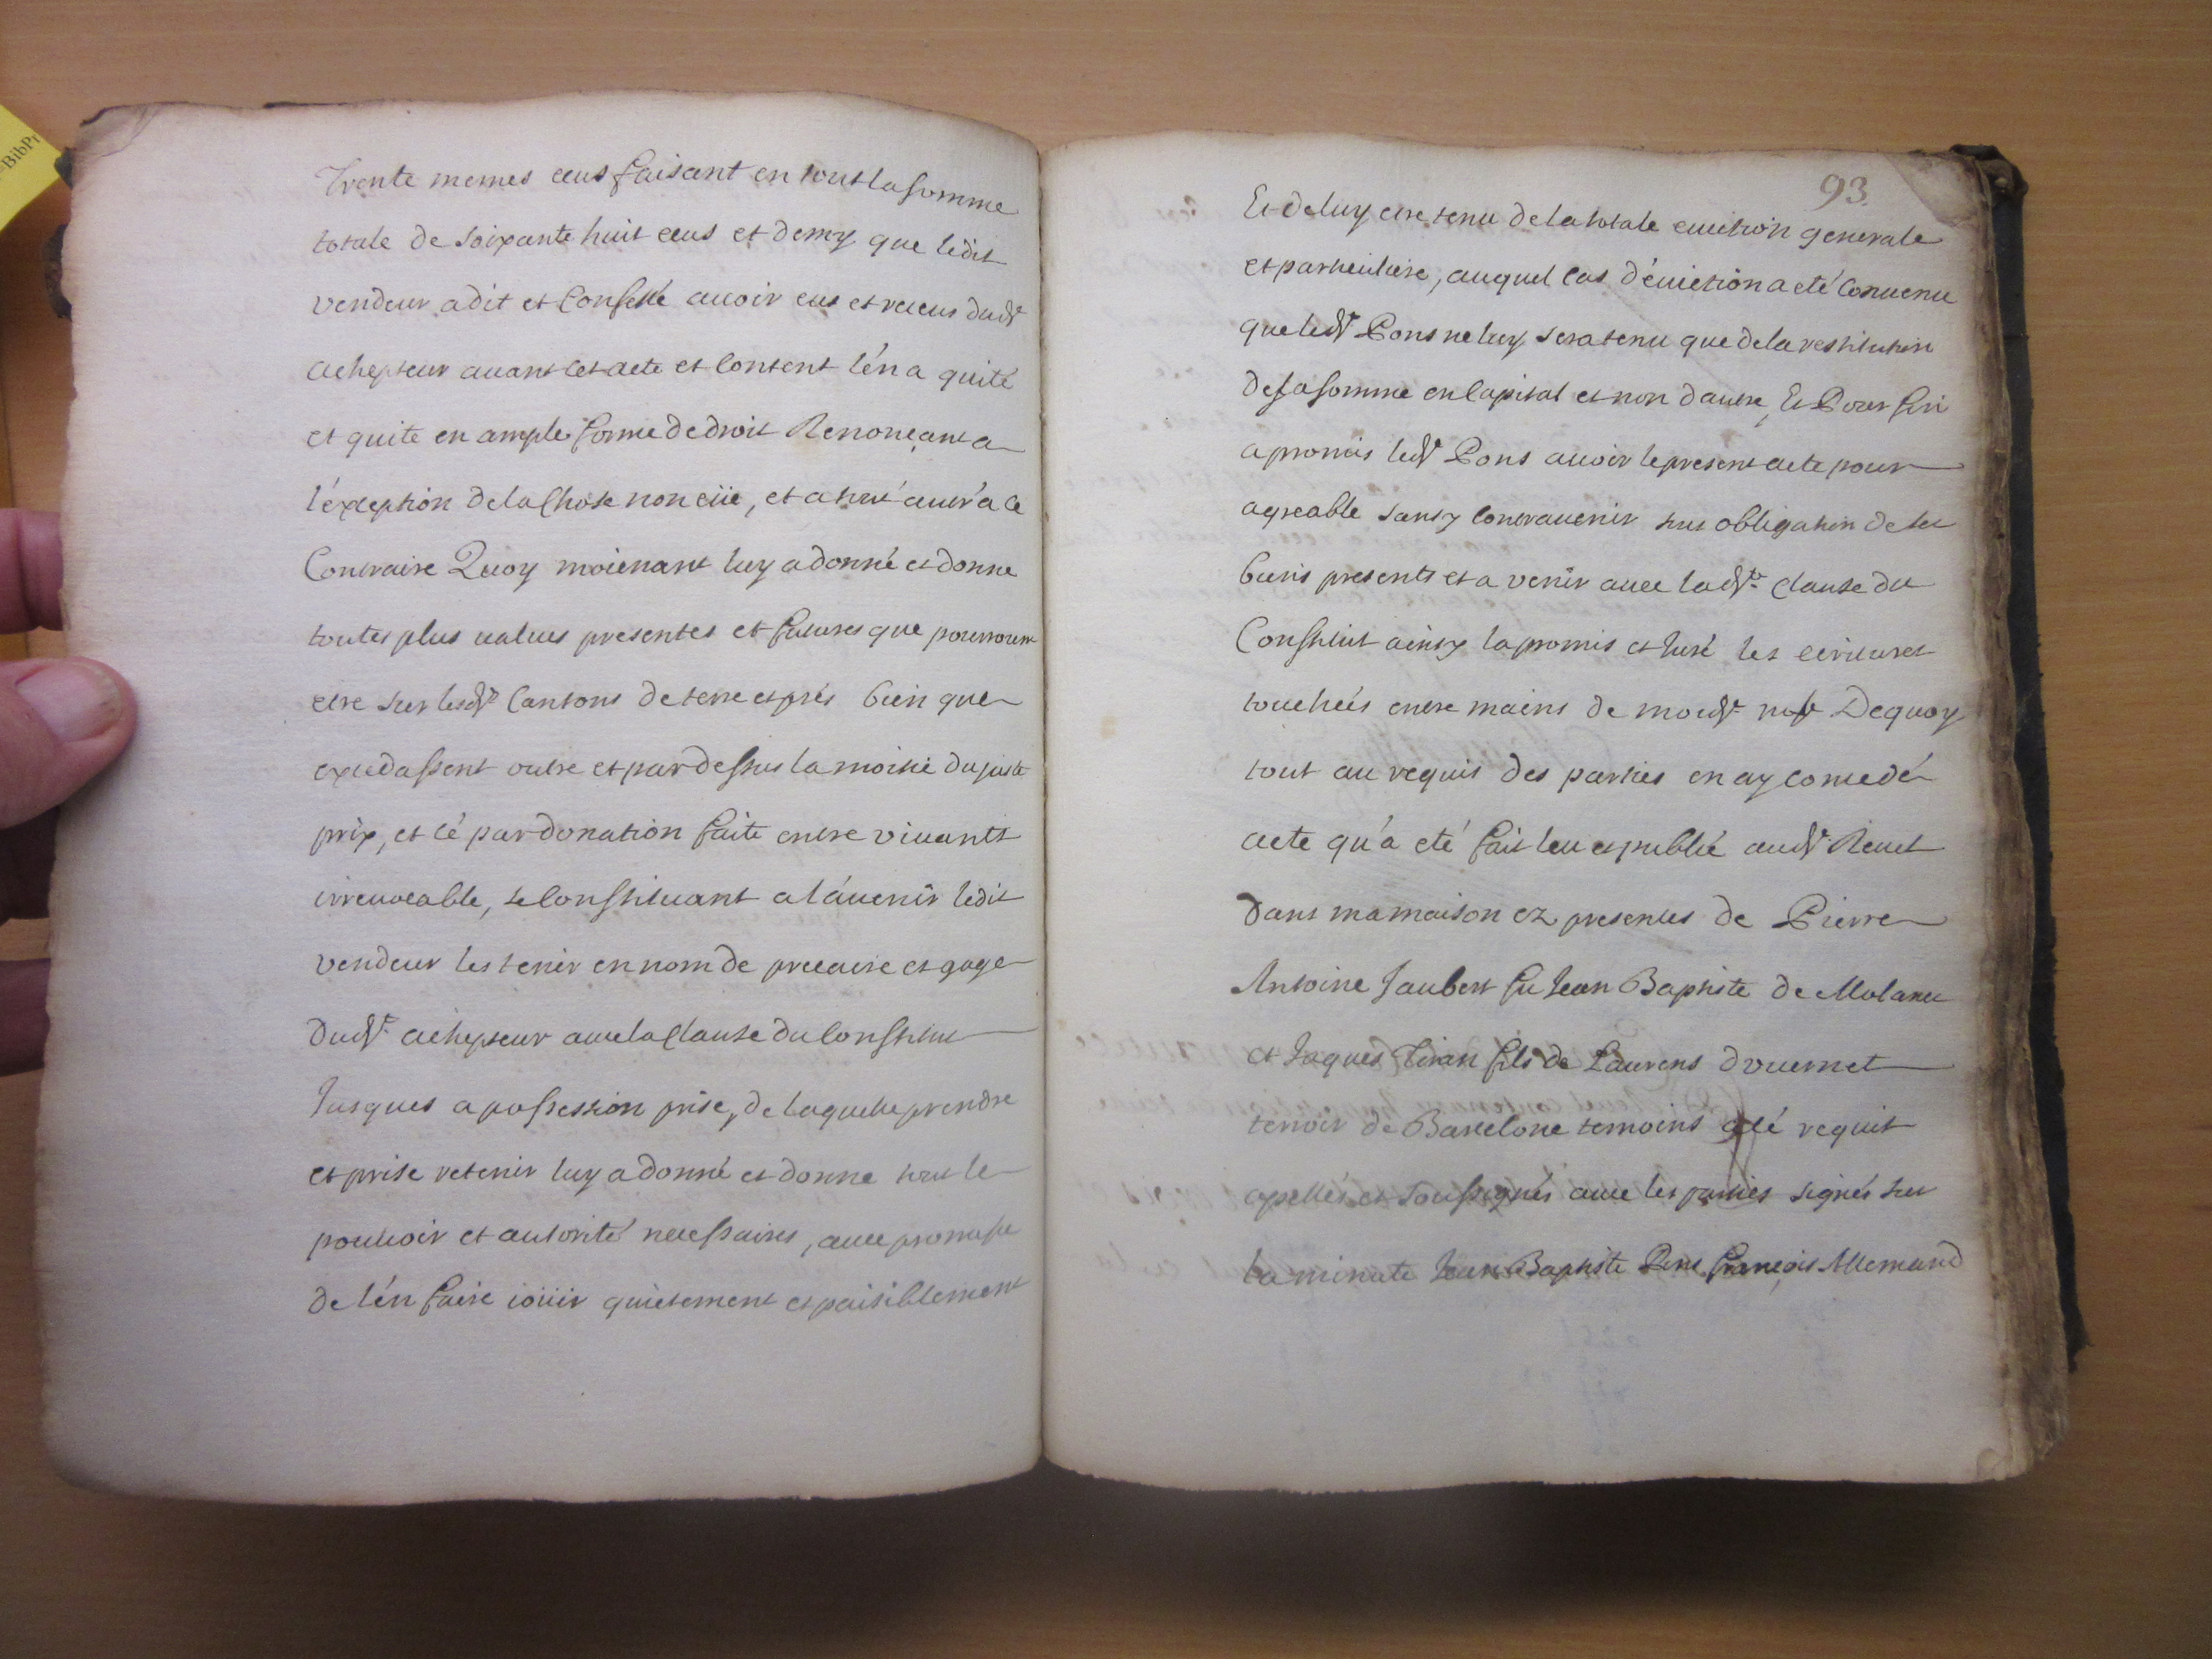 BibPr
Trente memes ecus faisant en tout la somme
totale de soixante huit ecus et demy que ledit
vendeur a dit et Confessé auoir eus et receus dudt
achepteur auant cet acte et Content l'én a quité
et quite en ample forme de droit Renonçant a
l'éxception de la Chose non eüe, et a tout aueu a ce
Contraire Quoy moienant luy a donné et donne
toutes plus values presentes et futures que pourroint
etre sur lesdts Cantons de terre et prés bien que
excedassent outre et par dessus la moitie du juste
prix, et cé par donation faite entre viuants
irreuocable, se Constituant a l'áuenir ledit
vendeur les tenir en nom de precaire et gage
dudt achepteur auec la Clause du Constitut
Jusques a possession prise, de laquelle prendre
et prise retenir luy a donné et donne tout le
pouuoir et autorité necessaires, auec promesse
de l'én faire ioüir quietement et paisiblement
93.
Et de luy etre tenu de la totale euiction generale
et particuliere, auquel Cas d'éuiction a eté Conuenu
que ledt Pons ne luy sera tenu que de la restitution
de sa somme en Capital et non d'autre, Et Pour fin
a promis ledt Pons auoir le present acte pour
agreable sans y Contrauenir sous obligation de ses
biens presents et a venir auec ladte Clause du
Constitut ainsy la promis et Juré les ecritures
touchées entre mains de moydt nore Dequoy
tout au requis des parties en ay concedé
acte qu'a eté fait leu et publié audt Reuel
dans ma maison ez presences de Pierre
Antoine Jaubert fu Jean Baptiste de Molanes
et Jaques Tiran fils de Laurens d'vuernet
terroir de Barcelone temoins a cé requis
apellés et Soussignés auec les parties signés sur
la minute Jean Baptiste Pons françois Allemand